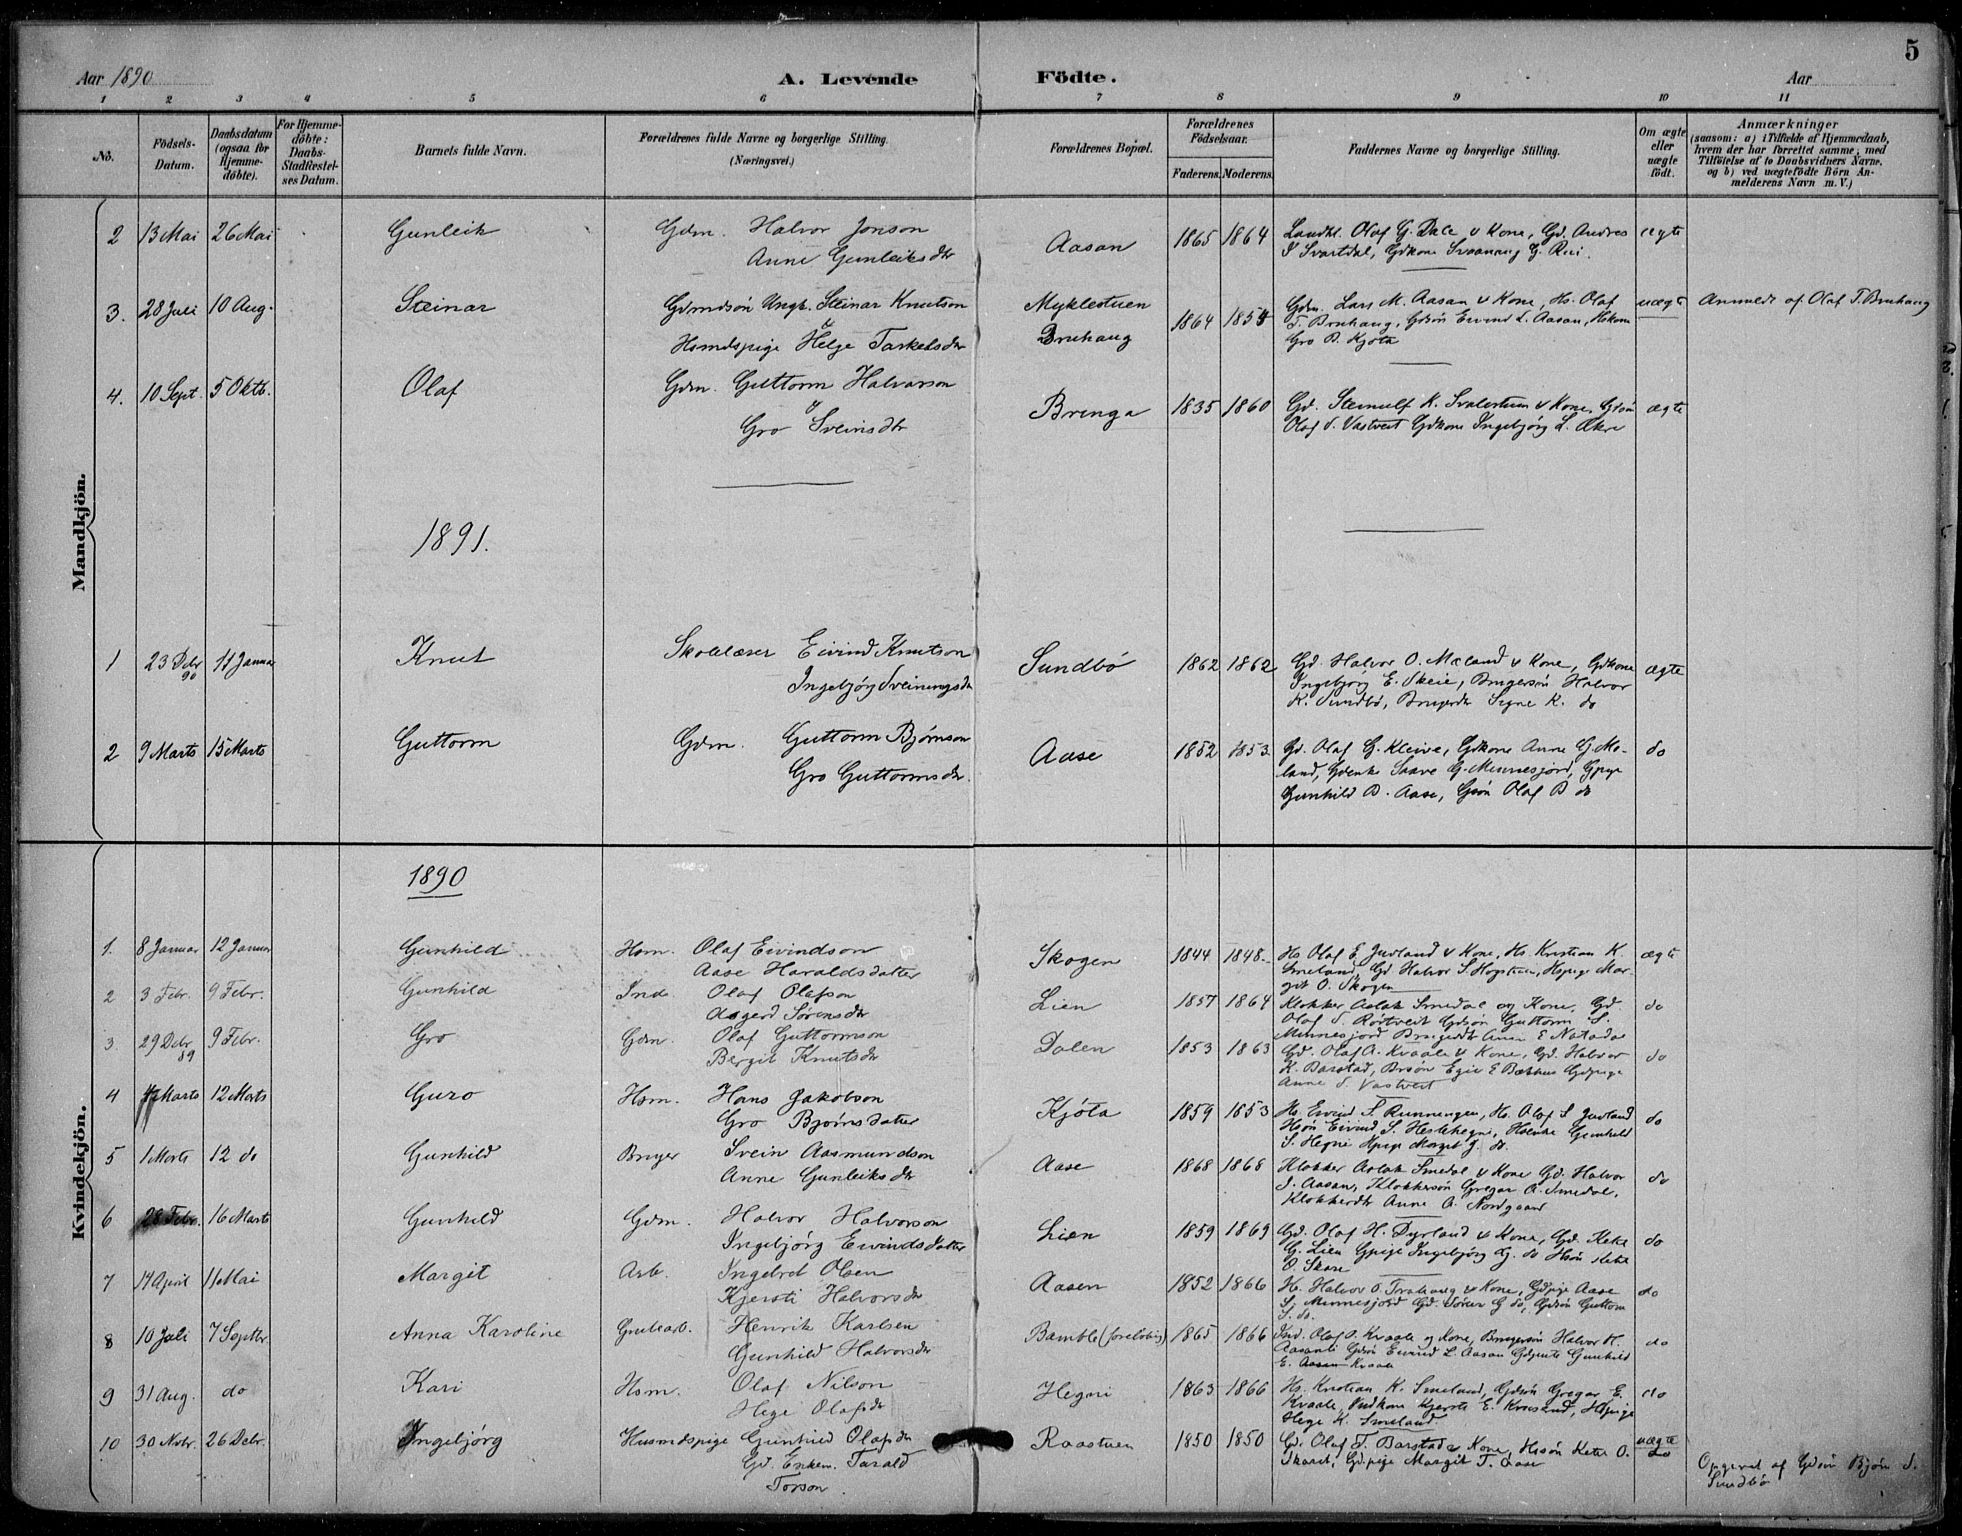 5
Aar 1890
A. Levende Födte.
Aar
1 2 3 4 5 6 7 8 9 10 11
No.
Födsels-Datum.
Daabsdatum (ogsaa for Hjemme-döbte).
For Hjemme-döbte: Daabs-Stadfæstel-ses Datum.
Barnets fulde Navn.
Forældrenes fulde Navne og borgerlige Stilling. (Næringsvei.)
Forældrenes Bopæl.
Forældrenes Födselsaar.
Faderens. Moderens.
Faddernes Navne og borgerlige Stilling.
Om ægte eller uægte födt.
Anmærkninger
(saasom: a) i Tilfælde af Hjemmedaab, hvem der har forrettet samme, med Tilföielse af to Daabsvidners Navne, og b) ved uægtefödte Börn Anmelderens Navn m. V.)
Mandkjön.
2 13 Mai 26 Mai Gunleik Gdm. Halvor Jonson
Anne Gunleiksdtr
Aasan 1865 1864 Landh. Olaf G. Dale & Kone, Gd. Andres
S Svartdal, Gdkone Svanaug G. Rui.
ægte
3. 28 Juli 10 Aug. Steinar Gdmdsön Ungk. Steinar Knutson
&
Hsmdspige Helge Tarkelsdtr
Myklestuen
Bruhaug
1864 1854 Gdm. Lars M. Aasan & Kone, Hs. Olaf
T. Bruhaug, Gdsön Eivind L. Aasan, Hskone
Gro B. Kjöta
uægte Anmeldt af Olaf T. Bruhaug
4. 10 Sept. 5 Oktb. Olaf Gdm. Guttorm Halvorson
&
Gro Sveinsdtr
Bringa 1835 1860 Gd. Steinulf K. Svalestuen & Kone, Gdsön
Olaf S. Vastveit Gdkone Ingebjörg L. Ækre
ægte
1891.
1 23 Debr 90 11 Januar Knut Skolelærer Eivind Knutson
Ingebjörg Sveinungsdtr
Sundbö 1862 1862 Gd. Halvor O. Mæland & Kone, Gdkone
Ingebjörg E. Skeie, Brugersön Halvor
K. Sundbö, Brugerdtr Signe K. do
ægte
2 9 Marts 15 Marts Guttorm Gdm. Guttorm Björnson
Gro Guttormsdtr.
Aase 1852 1853 Gd. Olaf G. Kleive, Gdkone Anne G. Me-
land, Gdenke Saave G. Minnesjord, Gpige
Gunhild B. Aase, Gsön Olaf B do
do
Kvindekjön.
1890
1. 8 Januar 12 Januar Gunhild Hsm. Olaf Eivindson
Aase Haraldsdatter
Skogen 1844 1848. Hs Olaf E. Juvland & Kone, Hs. Kristian K.
Smeland, Gd Halvor S. Hogstuen, Hspige Mar-
git O. Skogen
ægte
2 3 Febr. 9 Febr. Gunhild Ind. Olaf Olafson
Aagerd Sörensdtr
Lien 1857 1864 Klokker Aslak Smedal og Kone, Gd.
Olaf S. Röstveit Gdsön Guttorm S.
Minnesjord Brugerdtr Anne E Natadal
do
3 29 Debr 89 9 Febr. Gro Gdm. Olaf Guttormson
Bergit Knutsdtr
Dalen 1853 1863 Gd. Olaf A. Kvaale & Kone, Gd. Halvor
K. Barstad, Brsön Egil E Bækhus Gdpige
Anne S. Vastveit
do
4 Marts 12 Marts Guro Hsm. Hans Jakobson
Gro Björnsdatter
Kjöta 1859 1853 Hs. Eivind S. Runningen, Hs. Olaf S Juvland
Hsön Eivind S. Heslehegni, Hsenke Gunhild
S. Hegni Hpige Margit J. do.
do
5 1 Marts 12 do Gunhild Bruger Svein Aasmundson
Anne Gunleiksdtr
Aase 1868 1868 Klokker Aslak Smedal & Kone Gd. Halvor
J. Aasan, Klokkersön Gregar A. Smedal,
Klokkerdtr Anne A. Nordgaard
do
6 28 Febr. 16 Marts Gunhild Gdm. Halvor Halvorson
Ingebjörg Eivindsdatter
Lien 1859 1869 Gd. Olaf H. Dyrland & Kone, Gd. Ketil
G. Lien Gpige Ingebjörg G. do Hsön Ketil
O. Skare
do
7 14 April 11 Mai Margit Arb. Ingebret Olsen
Kjersti Halvorsdtr
Aasen 1852 1866 Hs. Halvor O. Bruhaug & Kone, Gdpige Aase
S. Minnesjord Gd. Sören G do, Gdsön Guttorm
S. do.
do
8 10 Juli 7 Septbr. Anna Karoline Grubearb. Henrik Karlsen
Gunhild Halvorsdtr
Bamble (forelöbig) 1865 1866 Ind. Olaf O. Kvaale og Kone, Brugersön Halvor H.
Aasanli Gdsön Eivind L. Aasan Gdjente Gunhild
E. Aasan Kvaale
do
9 31 Aug. do Kari Hsm. Olaf Nilson
Hege Olafsdtr
Hegni 1863 1866 Hs. Kristian K. Smeland, Gdsön Gregar E.
Kvaale, Indkone Kjersti E. Hspige
Hege K. Smeland
do
10 30 Novbr. 26 Debr. Ingebjörg Husmdspige Gunhild Olafsdtr
Gd. Enkem. Tarald
Torson.
Raastuen 1850 1850 Gd. Olaf T. Barstad & Kone, Hssön Ketil O.
Skaret, Gdpige Margit T. Aase
uægte
do
Opgivet af Gdsön Björn S.
Sundbö